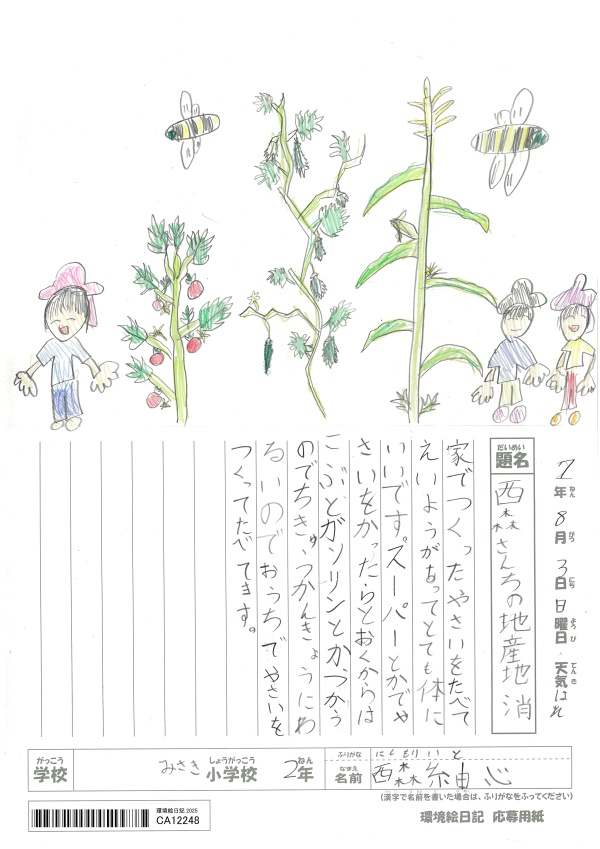 7年8月3日日曜日 天気はれ
ねん がつ にち ようび てんき
だいめい
題名 西森さんちの地産地消
家でつくったやさいをたべて
えいようがあってとても体に
いいです。スーパーとかでや
さいをかったらとおくからは
こぶとガソリンとかつかう
のでちきゅうかんきょうにわ
るいのでおうちでやさいを
つくってたべてます。
がっこう しょうがっこう ねん
学校 みさき小学校 2年
ふりがな にしもり いと
なまえ
名前 西森 紬心
(漢字で名前を書いた場合は、ふりがなをふってください)
環境絵日記 2025
CA12248
環境絵日記 応募用紙